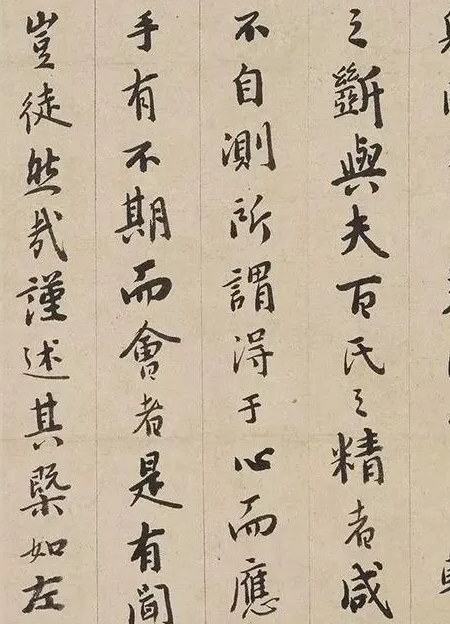 之斲與夫百氏之精者咸
不自測所謂得于心而應
手有不期而會者是有聞
豈徒然哉謹述其槩如左